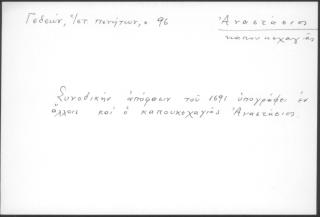 Γεδεών, Π/ετ. πενήτων, σ 96
Ἀναστάσιος
καπουκεχαγιάς
Συνοδικὴν ἀπόφασιν τοῦ 1691 ὑπογράφει ἐν
ἄλλοις καὶ ὁ καπουκεχαγιᾶς Ἀναστάσιος.